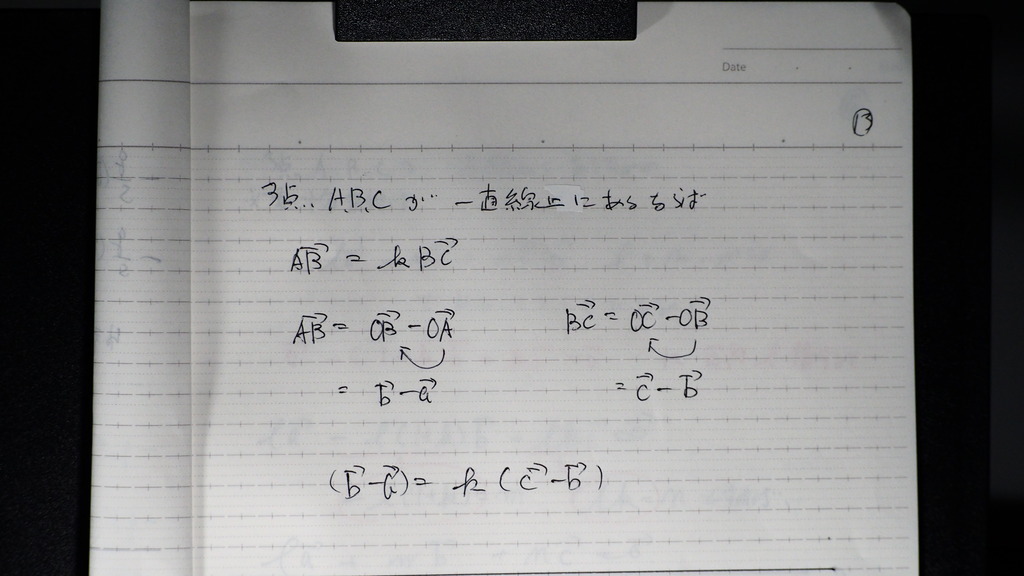 Date
⑬
3点 A,B,C が 一直線上にあるならば
$\overrightarrow{AB} = k\overrightarrow{BC}$
$\overrightarrow{AB} = \overrightarrow{OB} - \overrightarrow{OA}$ $\overrightarrow{BC} = \overrightarrow{OC} - \overrightarrow{OB}$
$= \vec{b} - \vec{a}$ $= \vec{c} - \vec{b}$
$(\vec{b} - \vec{a}) = k(\vec{c} - \vec{b})$